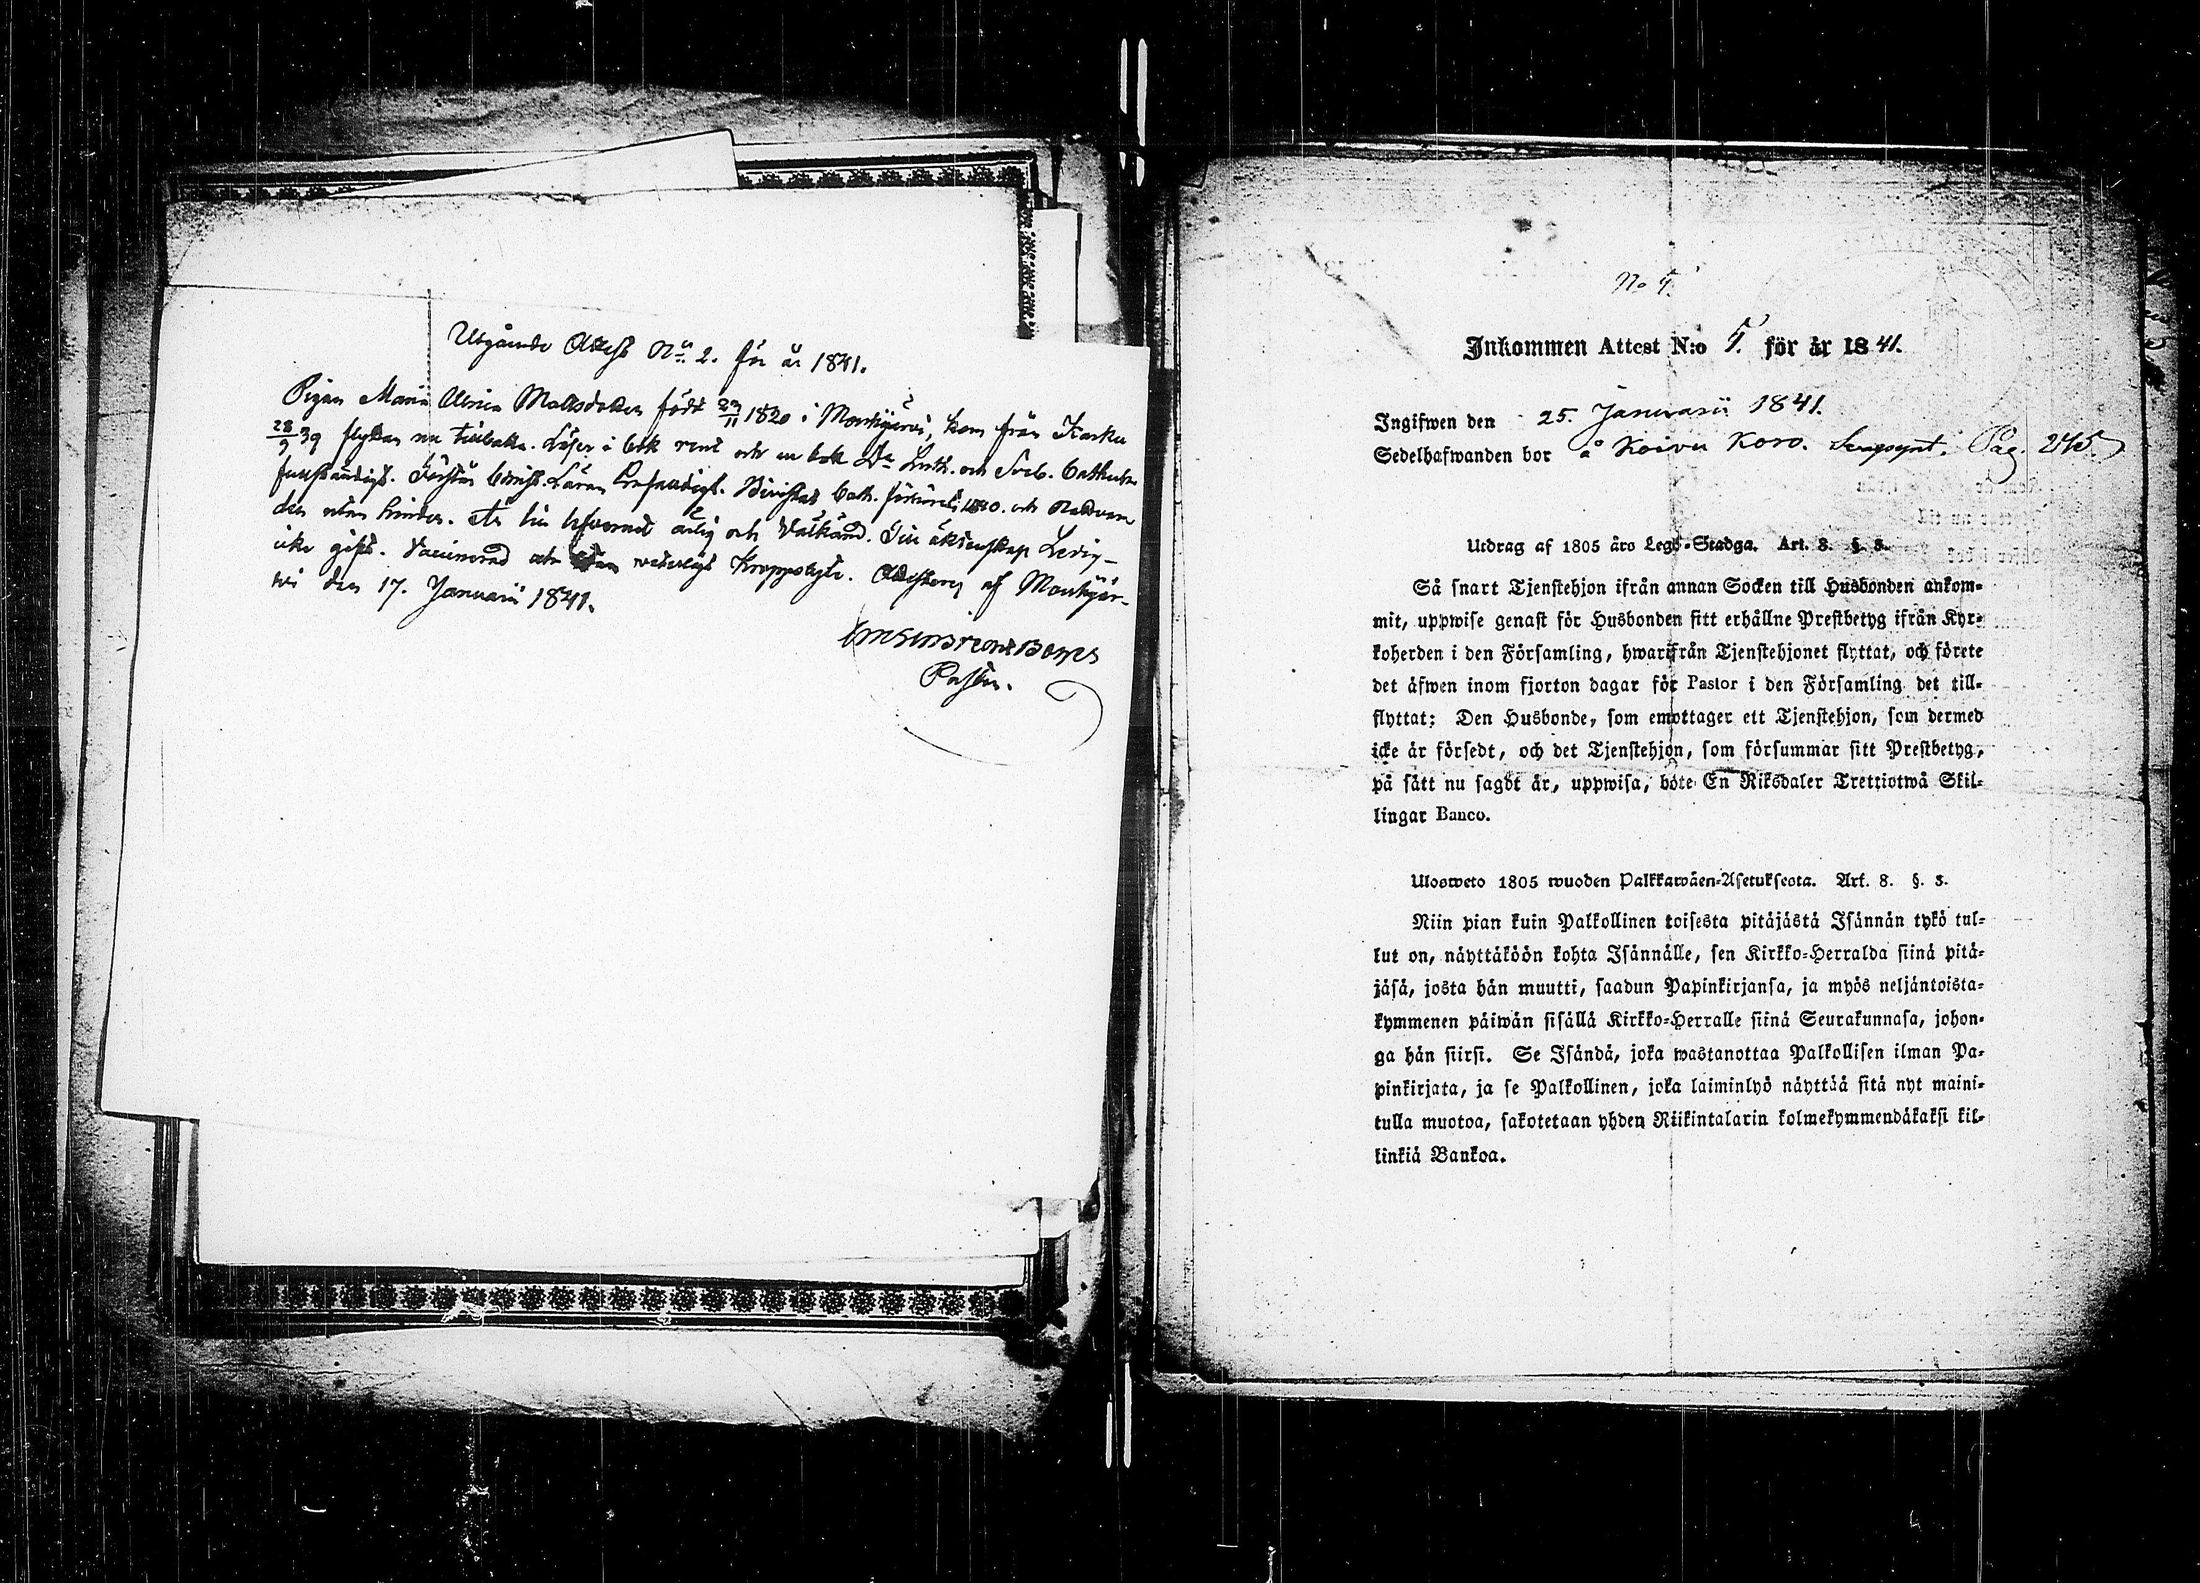 Utgående Attest No 2. för år 1841.
Pigan Maria Ulrica Mattsdotter född 23/11 1820 i Mouhijärvi, kom från Karku
28/9 39 flyttar nu tillbaka. Läser i bok rent och en bok Dr Luth. och Sveb. Cathecher
fullständigt. Förstår Christ. Läran. Bivistat Cath. förhöret 1840. och Nattvar
den utan hinder. Är till lefvernet ärlig och välkänd. Till äktenskap Ledig
icke gift. Vaccinerad och utan Kroppslyte. Attesterar af Mouhijär-
wi den 17. Januarii 1841.
Pastor.
No 5.
Inkommen Attest N:o 5. för år 1841.
Ingifwen den 25. Januarii 1841.
Sedelhafwanden bor å Koivu Koro. Pag. 245.
Utdrag af 1805 års Lego-Stadga. Art. 8. §. 3.
Så snart Tjenstehjon ifrån annan Socken till Husbonden ankom-
mit, uppwise genast för Husbonden sitt erhållne Prestbetyg ifrån Kyr-
koherden i den Församling, hwarifrån Tjenstehjonet flyttat, och förete
det äfwen inom fjorton dagar för Pastor i den Församling det till-
flyttat; Den Husbonde, som emottager ett Tjenstehjon, som dermed
icke är försedt, och det Tjenstehjon, som försummar sitt Prestbetyg,
på sätt nu sagdt är, uppwisa, böte En Riksdaler Trettiotwå Skil-
lingar Banco.
Ulosweto 1805 wuoden Palkkawäen-Asetuksesta. Art. 8. §. 3.
Niin pian kuin Palkollinen toisesta pitäjästä Isännän tykö tul-
lut on, näyttäköön kohta Isännälle, sen Kirkko-Herralda siinä pitä-
jäsä, josta hän muutti, saadun Papinkirjansa, ja myös neljäntoista-
kymmenen päiwän sisällä Kirkko-Herralle siinä Seurakunnasa, johon-
ga hän siirsi. Se Isändä, joka wastanottaa Palkollisen ilman Pa-
pinkirjata, ja se Palkollinen, joka laiminlyö näyttää sitä nyt maini-
tulla muotoa, sakotetaan yhden Riikintalarin kolmekymmendäkaksi kil-
linkiä Bankoa.